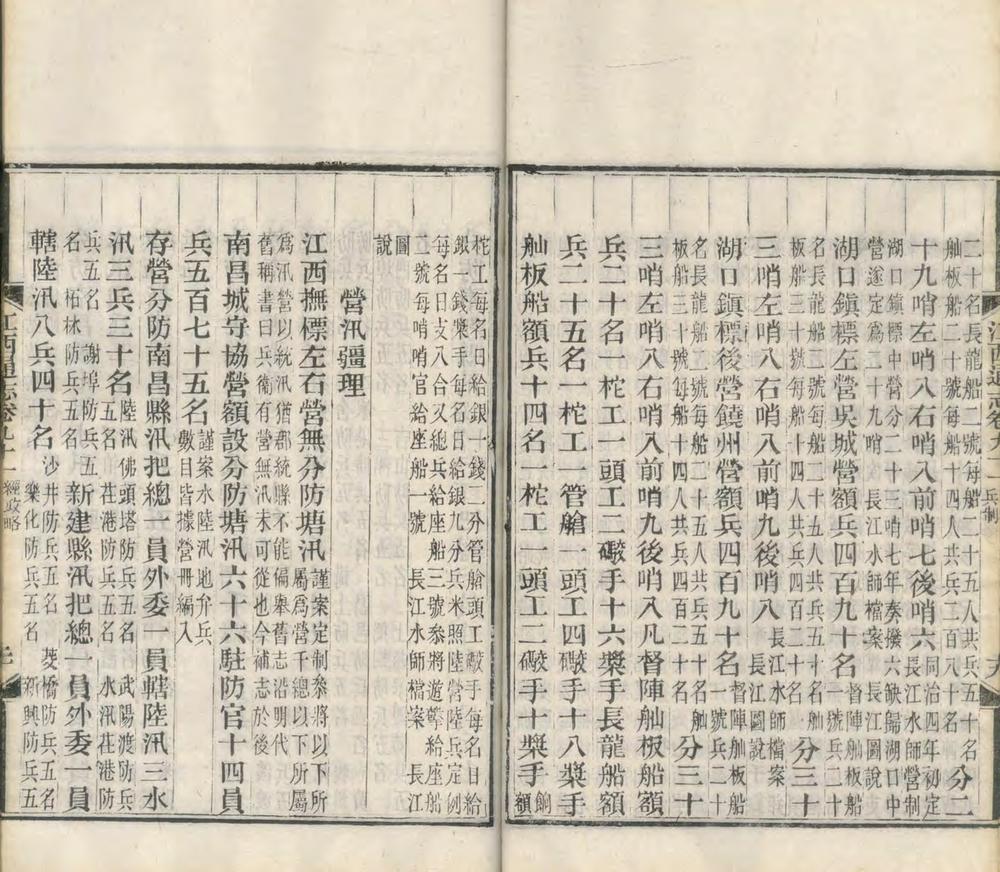 二十名長龍船二號每船二十五人共兵五十名
舢板船二十號每船十四人共兵二百八十名
分二
十九哨左哨八右哨八前哨七後哨六
同治四年初定長江水師營制
湖口鎮標中營分二十三哨七年奏撥六缺歸湖口中
營遂定爲二十九哨 長江水師檔案 長江圖說
湖口鎮標左營吳城營額兵四百九十名
督陣舢板船
一號兵二十
名長龍船二號每船二十五人共兵五十名舢
板船三十號每船十四人共兵四百二十名
分三十
三哨左哨八右哨八前哨九後哨八
長江水師檔案
長江圖說
湖口鎮標後營饒州營額兵四百九十名
督陣舢板船
一號兵二十
名長龍船二號每船二十五人共兵五十名舢
板船三十號每船十四人共兵四百二十名
分三十
三哨左哨八右哨八前哨九後哨八凡督陣舢板船額
兵二十名一柁工一頭工二礮手十六槳手長龍船額
兵二十五名一柁工一管艙一頭工四礮手十八槳手
舢板船額兵十四名一柁工一頭工二礮手十槳手
餉
額
柁工每名日給銀一錢二分管艙頭工礮手每名日給
銀一錢槳手每名日給銀九分兵米照陸營陸兵定例
每名日支八合又總兵給座船三號參將遊擊給座船
二號每哨哨官給座船一號 長江水師檔案 長江
圖
說
營汛疆理
江西撫標左右營無分防塘汛
謹案定制參將以下所
屬爲營千總以下所屬
爲汛營以統汛猶郡統縣不能偏舉舊志沿明代
舊稱書曰兵衛有營無汛未可從也今補志於後
南昌城守協營額設分防塘汛六十六駐防官十四員
兵五百七十五名
謹案水陸汛地弁兵
數目皆據營冊編入
存營分防南昌縣汛把總二員外委一員轄陸汛三水
汛三兵三十名
陸汛佛頭塔防兵五名 武陽渡防兵
五名 荏港防兵五名 水汛荏港防
兵五名 謝埠防兵五
名 柘林防兵五名
新建縣汛把總一員外委一員
轄陸汛八兵四十名
沙井防兵五名 菱橋防兵五名
樂化防兵五名 新興防兵五
江西通志卷九十一 經政略
江西通志卷九十一 兵制